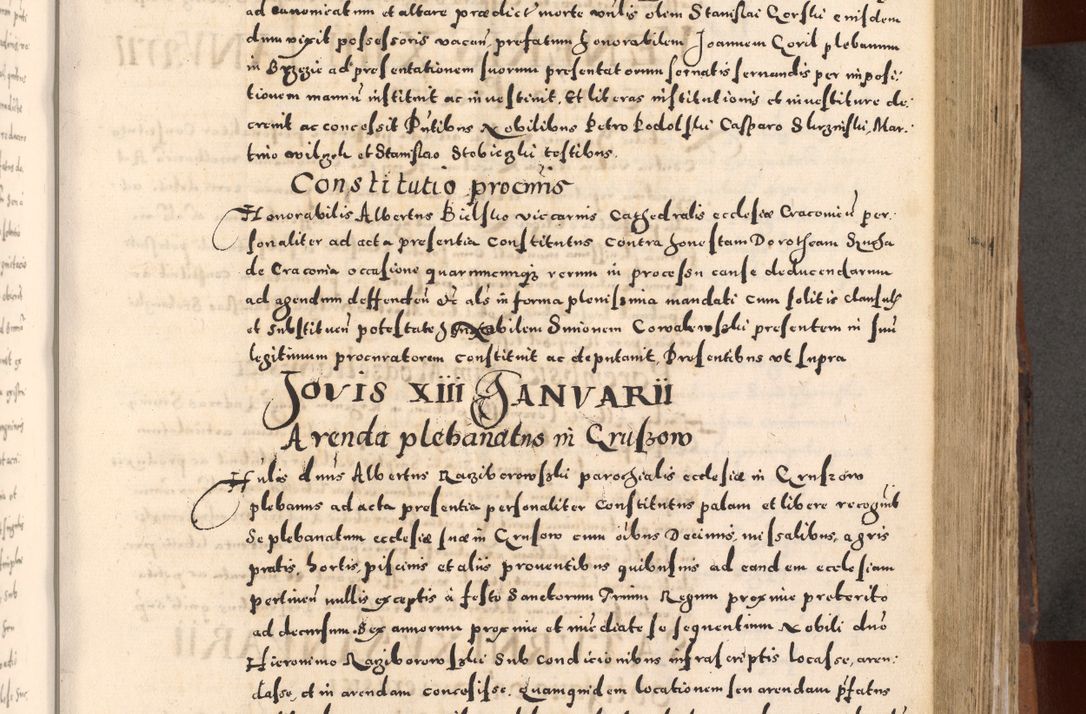 ad canonicatum et altare prædict morte vnius olim Stanislai Gorski eiusdem
dum vixit possessoris vacan prefatum honorabilem Joannem Goril plebanum
in Brzezie ad presentationem suorum presentatorum seruatis seruandis per imposi-
tionem manuū instituit ac inuestiuit. Et literas institutionis et inuestiture de-
creuit ac concessit Pntibus Nobilibus Petro Podolski Casparo Skrznislii, Mar-
tino wilgoh et Stanislao Stobieczki testibus.
Constitutio procuris
Honorabilis Albertus Bielski viccarius Cathedralis ecclesiæ Cracouieñ per-
sonaliter ad acta presentia Constitutus Contra honestam Dorotheam
de Cracouia occasione quarumcunqz rerum in processu cause deducendarum
ad agendum deffendeñ etc als in forma plenissima mandati cum solitis clausulis
et substitueñ potestate bilem Simonem Cowalewski presentem in suū
legitimum procuratorem constituit ac deputauit. Presentibus vt supra
JOVIS XIII JANVARII
Arenda plebanatus in Gruszow
Hulis dnus Albertus Raziborowszki parochialis ecclesiæ in Gruszow
plebanus ad acta presentia personaliter Constitutus palam et libere recognouit
Se plebanatum ecclesiæ suæ in Gruszow cum oibus Decimis, missalibus, agris
pratis, hortis, piscinis et aliis prouentibus quibusuis ad eandem ecclesiam
pertineñ nullis exceptis à festo Sanctorum Trium Regum proxime preterito
ad decursum Sex annorum proxime et imediate se sequentium Nobili dno
Hieronimo Raziborowszki Sub Condicionibus infrascriptis locasse, aren-
dasse, et in arendam concessisse. Quamquidem locationem seu arendam pfatus